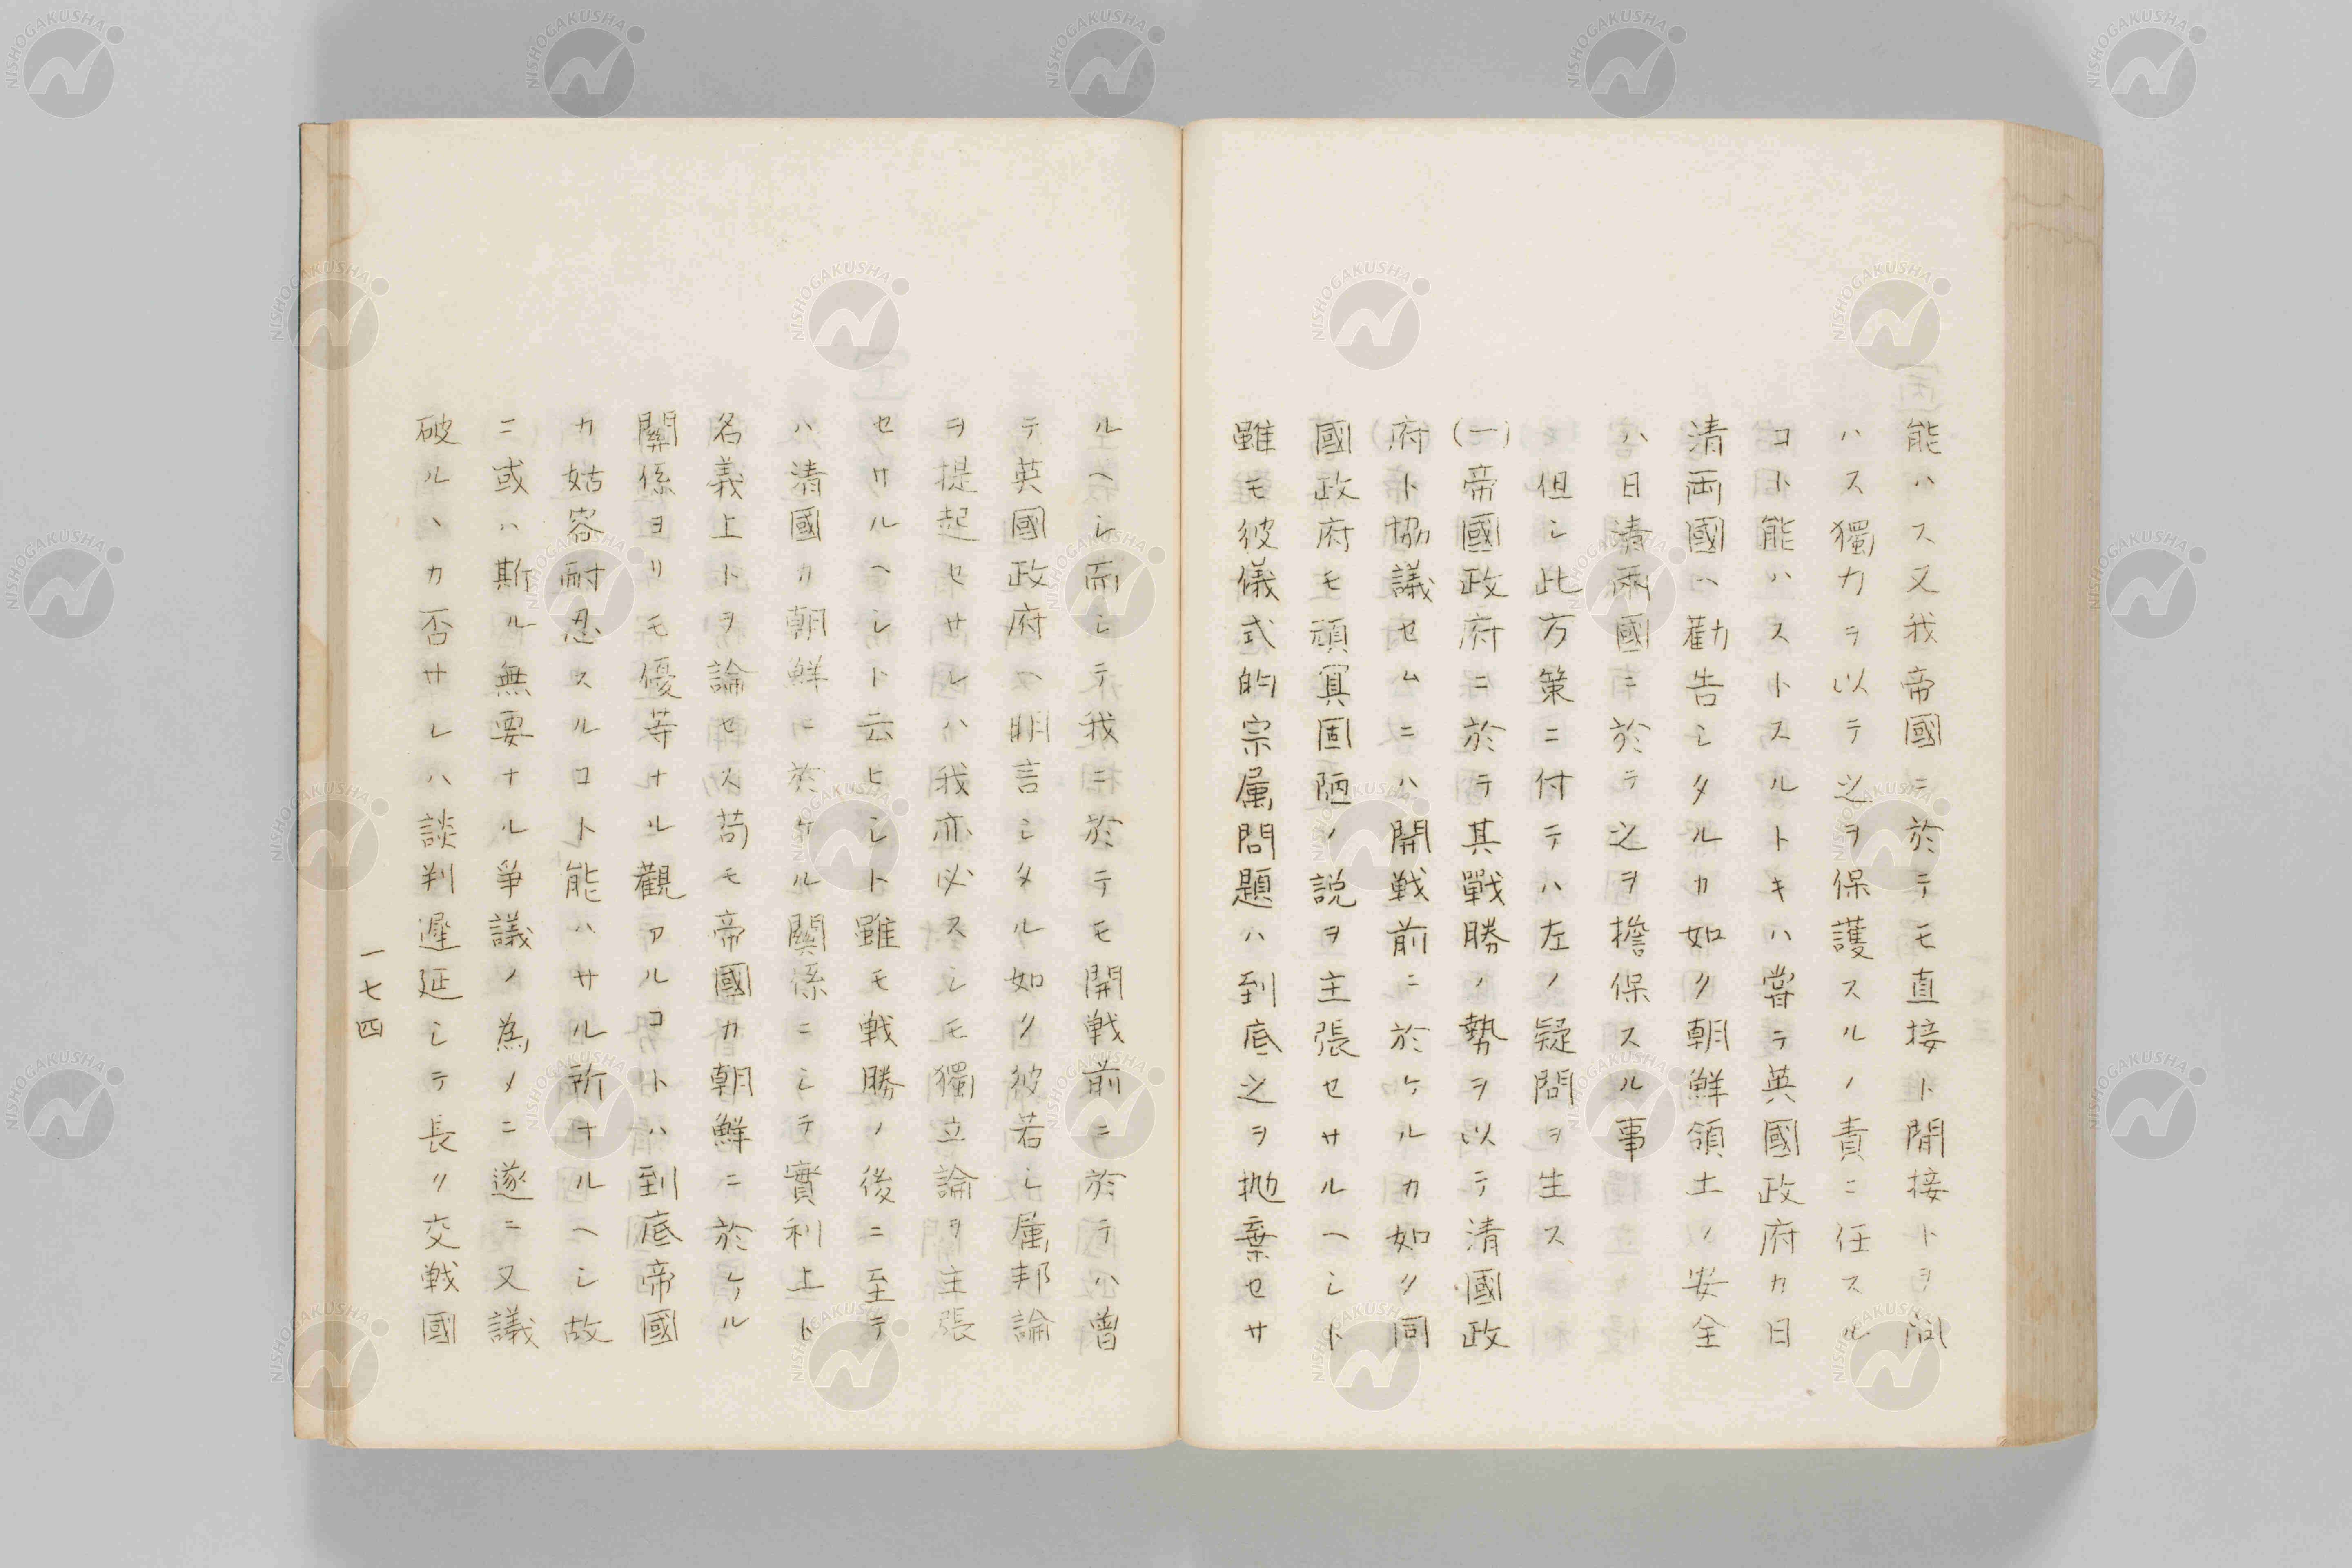 能ハス又我帝國ニ於テモ直接ト間接トヲ問
ハス獨力ヲ以テ之ヲ保護スルノ責ニ任スル
コト能ハストスルトキハ嘗テ英國政府カ日
清両國ヘ勸告シタルカ如ク朝鮮領土ノ安全
ハ日清兩國ニ於テ之ヲ擔保スル事
但シ此方策ニ付テハ左ノ疑問ヲ生ス
(一)帝國政府ニ於テ其戰勝ノ勢ヲ以テ清國政
府ト協議セムニハ開戦前ニ於ケルカ如ク同
國政府モ頑冥固陋ノ説ヲ主張セサルヘシト
雖モ彼儀式的宗属問題ハ到底之ヲ抛棄セサ
ルヘシ而シテ我ニ於テモ開戦前ニ於テハ曽
テ英國政府ヘ明言シタル如ク彼若シ属邦論
ヲ提起セサレハ我亦必スシモ獨立論ヲ主張
セサルヘシト云ヒシト雖モ戦勝ノ後ニ至テ
ハ清國カ朝鮮ニ於ケル關係ニシテ實利上ト
名義上トヲ論セス苟モ帝國カ朝鮮ニ於ケル
關係ヨリモ優等ナル觀アルコトハ到底帝國
カ姑容耐忍スルコト能ハサル所ナルヘシ故
ニ或ハ斯ル無要ナル爭議ノ為メニ遂ニ又議
破ルヽカ否サレハ談判遲延シテ長ク交戦國
一七四
NISHOGAKUSHA